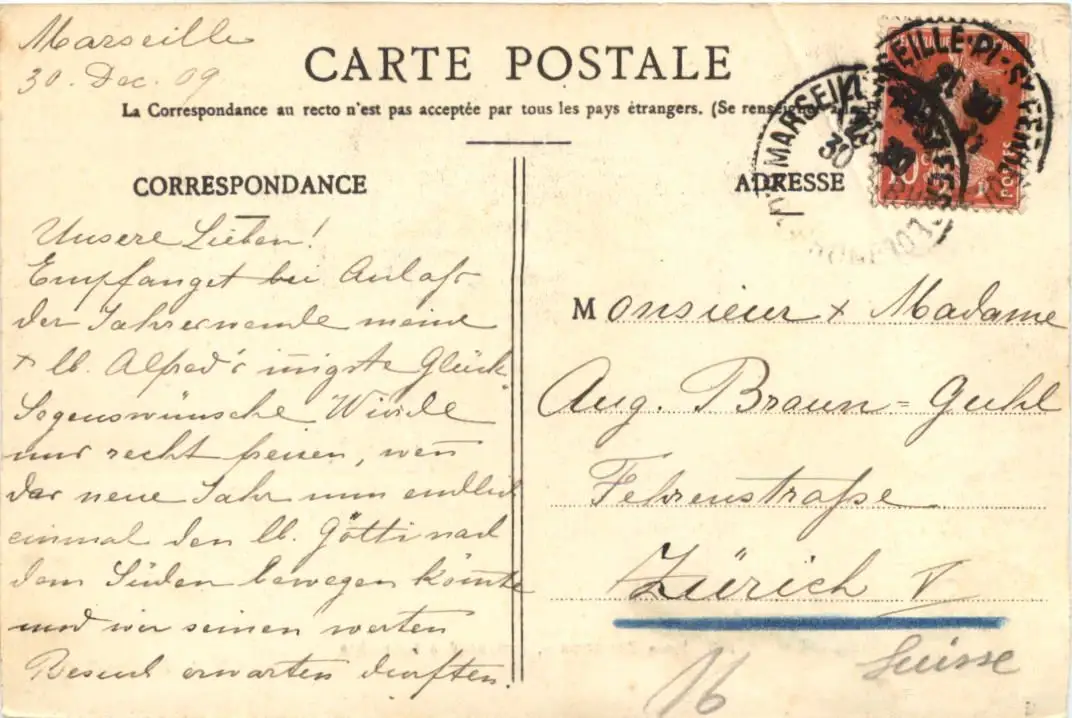 Marseille
30. Dec. 09
CARTE POSTALE
La Correspondance au recto n'est pas acceptée par tous les pays étrangers. (Se renseigner
CORRESPONDANCE
Unsere Lieben!
Empfanget bei Anlaß
der Jahreswende meine
+ lb. Alfred's innigste Glück-
Segenswünsche Würde
mich recht freuen, wen̄
das neue Jahr nun endlich
einmal den lb. Götti nach
dem Süden bewegen kön̄te
und wir seinen werten
Besuch erwarten dürften.
ADRESSE
Monsieur & Madame
Aug. Braun=Guhl
Fehrenstraße
Zürich V
Suisse
16
MARSEILLE
30
POSTES